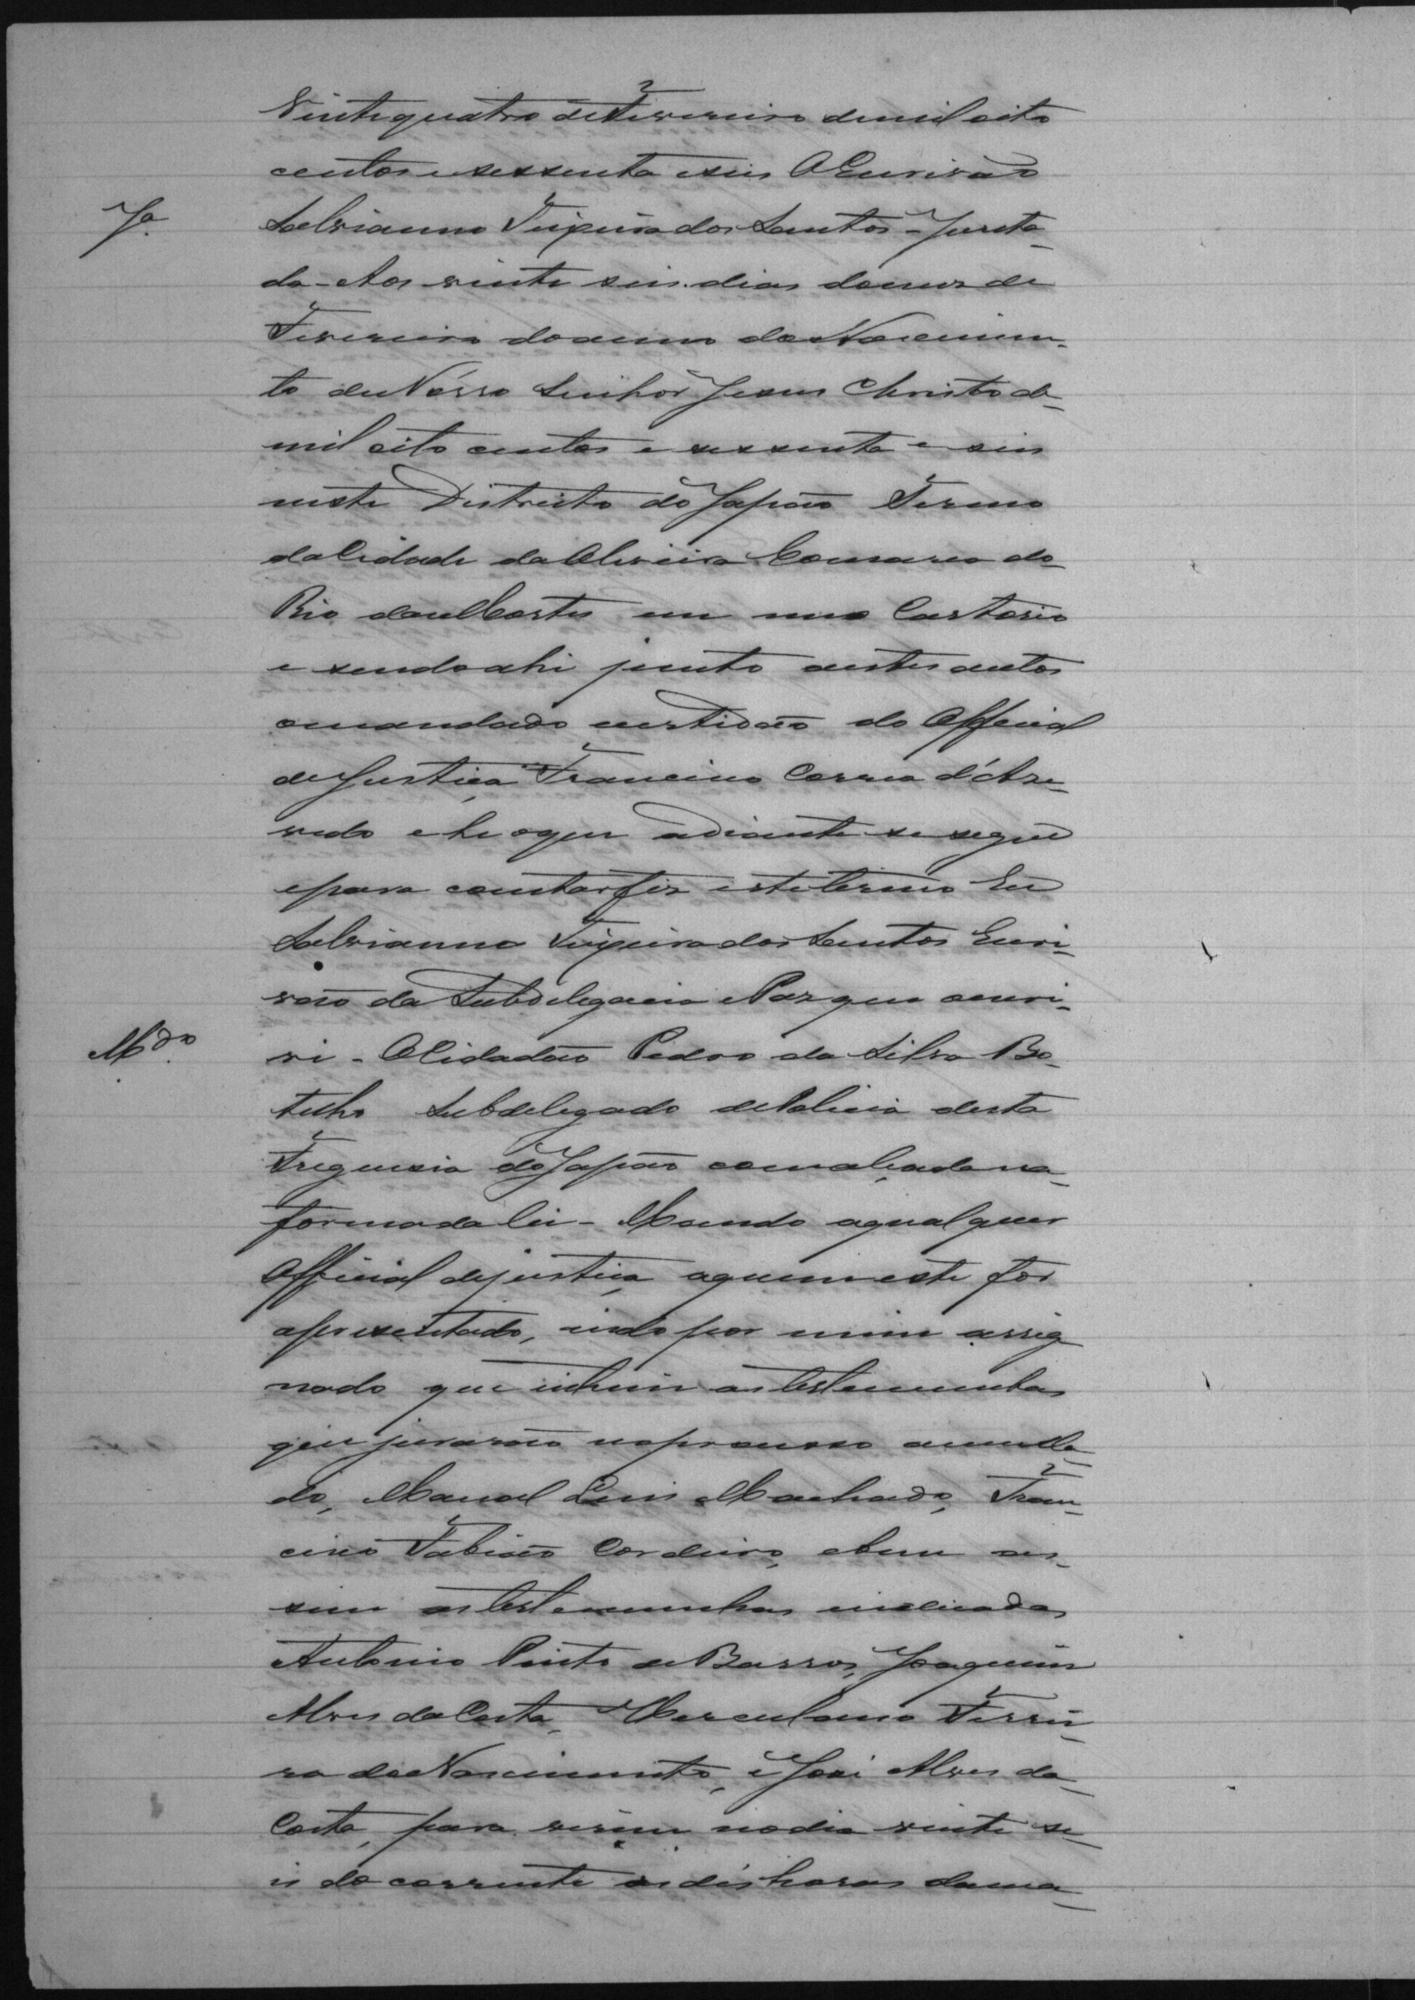 Vinte quatro de Fevereiro de mil oito
centos e sessenta e seis O Escrivão
J.ª
Salvianno Teixeira dos Santos - Junta-
da - Aos vinte seis dias do mes de
Fevereiro do anno do Nascimen-
to de Nosso Senhor Jesus Christo de
mil oito centos e sessenta e seis
neste Districto do Japão Termo
da Cidade da Oliveira Comarca do
Rio das Mortes em meo Cartorio
e sendo ahi junto a estes autos
o mandado e certidão do Official
de Justiça, Francisco Correa d'Aze-
vedo e he o que adiante se segue
e para constar fiz este termo Eu
Salvianno Teixeira dos Santos Escri-
vão da Subdelegacia e Paz que escri-
M.do
vi - O Cidadão Pedro da Silva Bo-
telho Subdelegado de Policia desta
Freguesia do Japão na
forma da lei - Mando a qual quer
Official de justiça, a quem este for
apresentado, indo por mim assig
nado que intime as testemunhas
que jurarão no processo annulla-
do, Manoel Luis Machado, Fran-
cisco Fabião Cordeiro, e bem as-
sim as testemunhas indicadas
Antonio Pinto de Barros, Joaquim
Alves da Costa, Herculano Ferrei-
ra do Nascimento, e José Alves da
Costa, para virem no dia vinte se-
is do corrente as dés horas da ma-